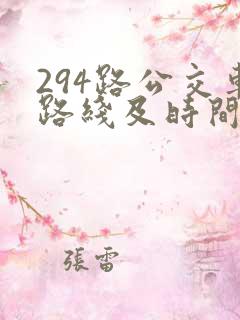 294路公交車
路綫及時間
張雷